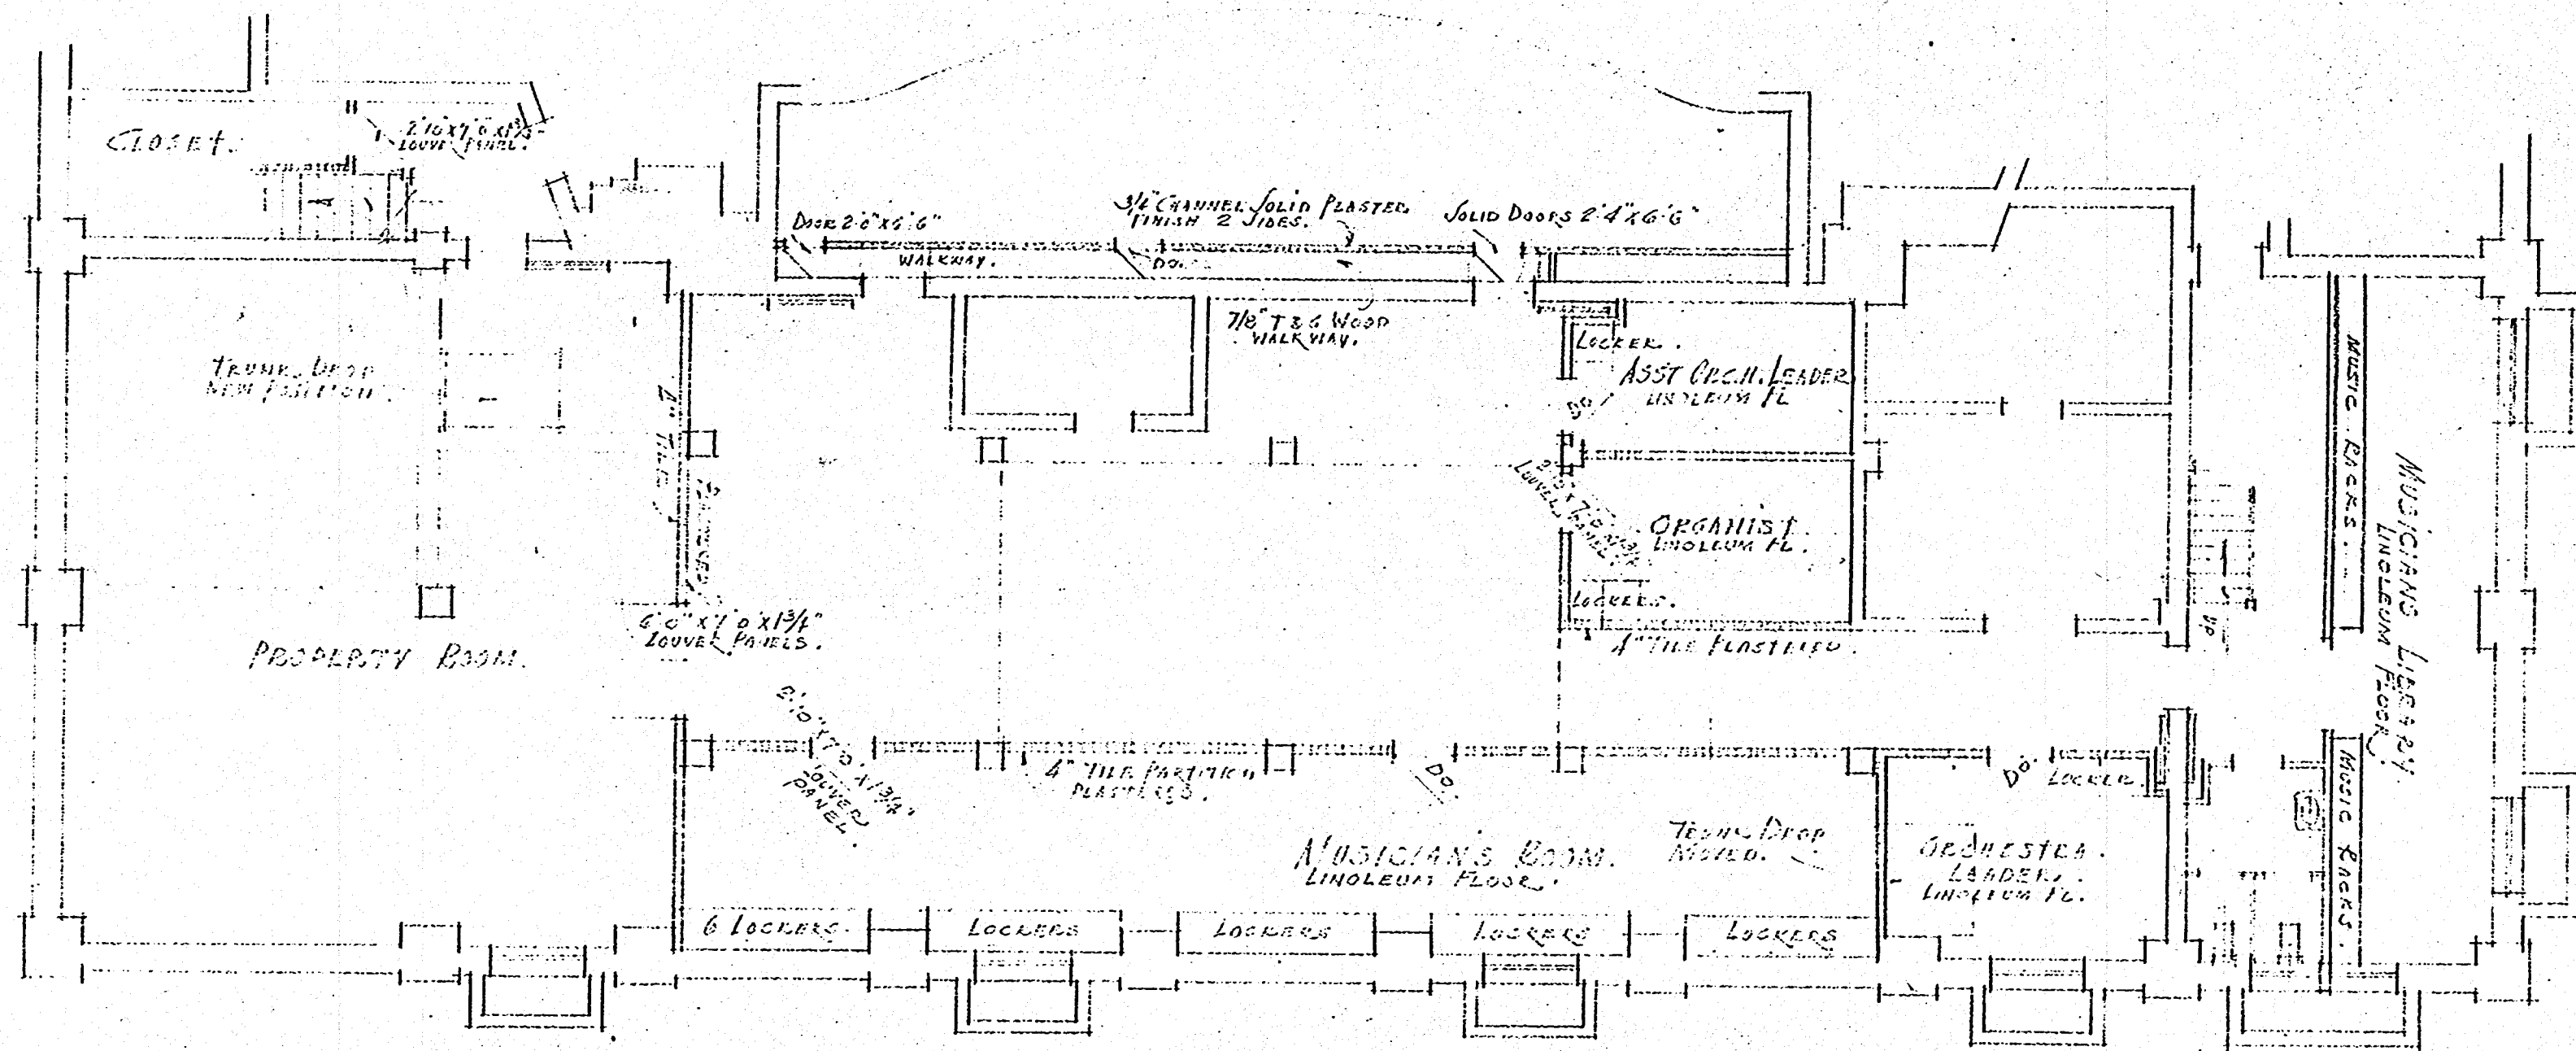 CLOSET.
2'10"x7'0"x1¾"
LOUVER PANEL.
DOOR 2'0"x6'6"
WALKWAY.
3/4" CHANNEL SOLID PLASTER
FINISH 2 SIDES.
DO.
SOLID DOORS 2'4"x6'6"
7/8" T & G WOOD
WALKWAY.
TRUNK DROP
NEW POSITION
4" TILE
PLASTERED
LOCKER.
ASST ORCH. LEADER
LINOLEUM FL
DO.
LOUVER PANEL
ORGANIST.
LINOLEUM FL.
LOCKERS.
4" TILE PLASTERED.
6'0"x7'0"x1¾"
LOUVER PANELS.
PROPERTY ROOM.
2'0"x7'0"x1¾"
LOUVER
PANEL.
4" TILE PARTITION
PLASTERED.
DO.
MUSICIAN'S ROOM.
LINOLEUM FLOOR.
TRUNK DROP
MOVED.
DO.
LOCKER.
ORCHESTRA
LEADER.
LINOLEUM FL.
6 LOCKERS.
LOCKERS
LOCKERS
LOCKERS
LOCKERS
UP
MUSIC RACKS.
MUSICIANS LIBRARY.
LINOLEUM FLOOR.
MUSIC RACKS.